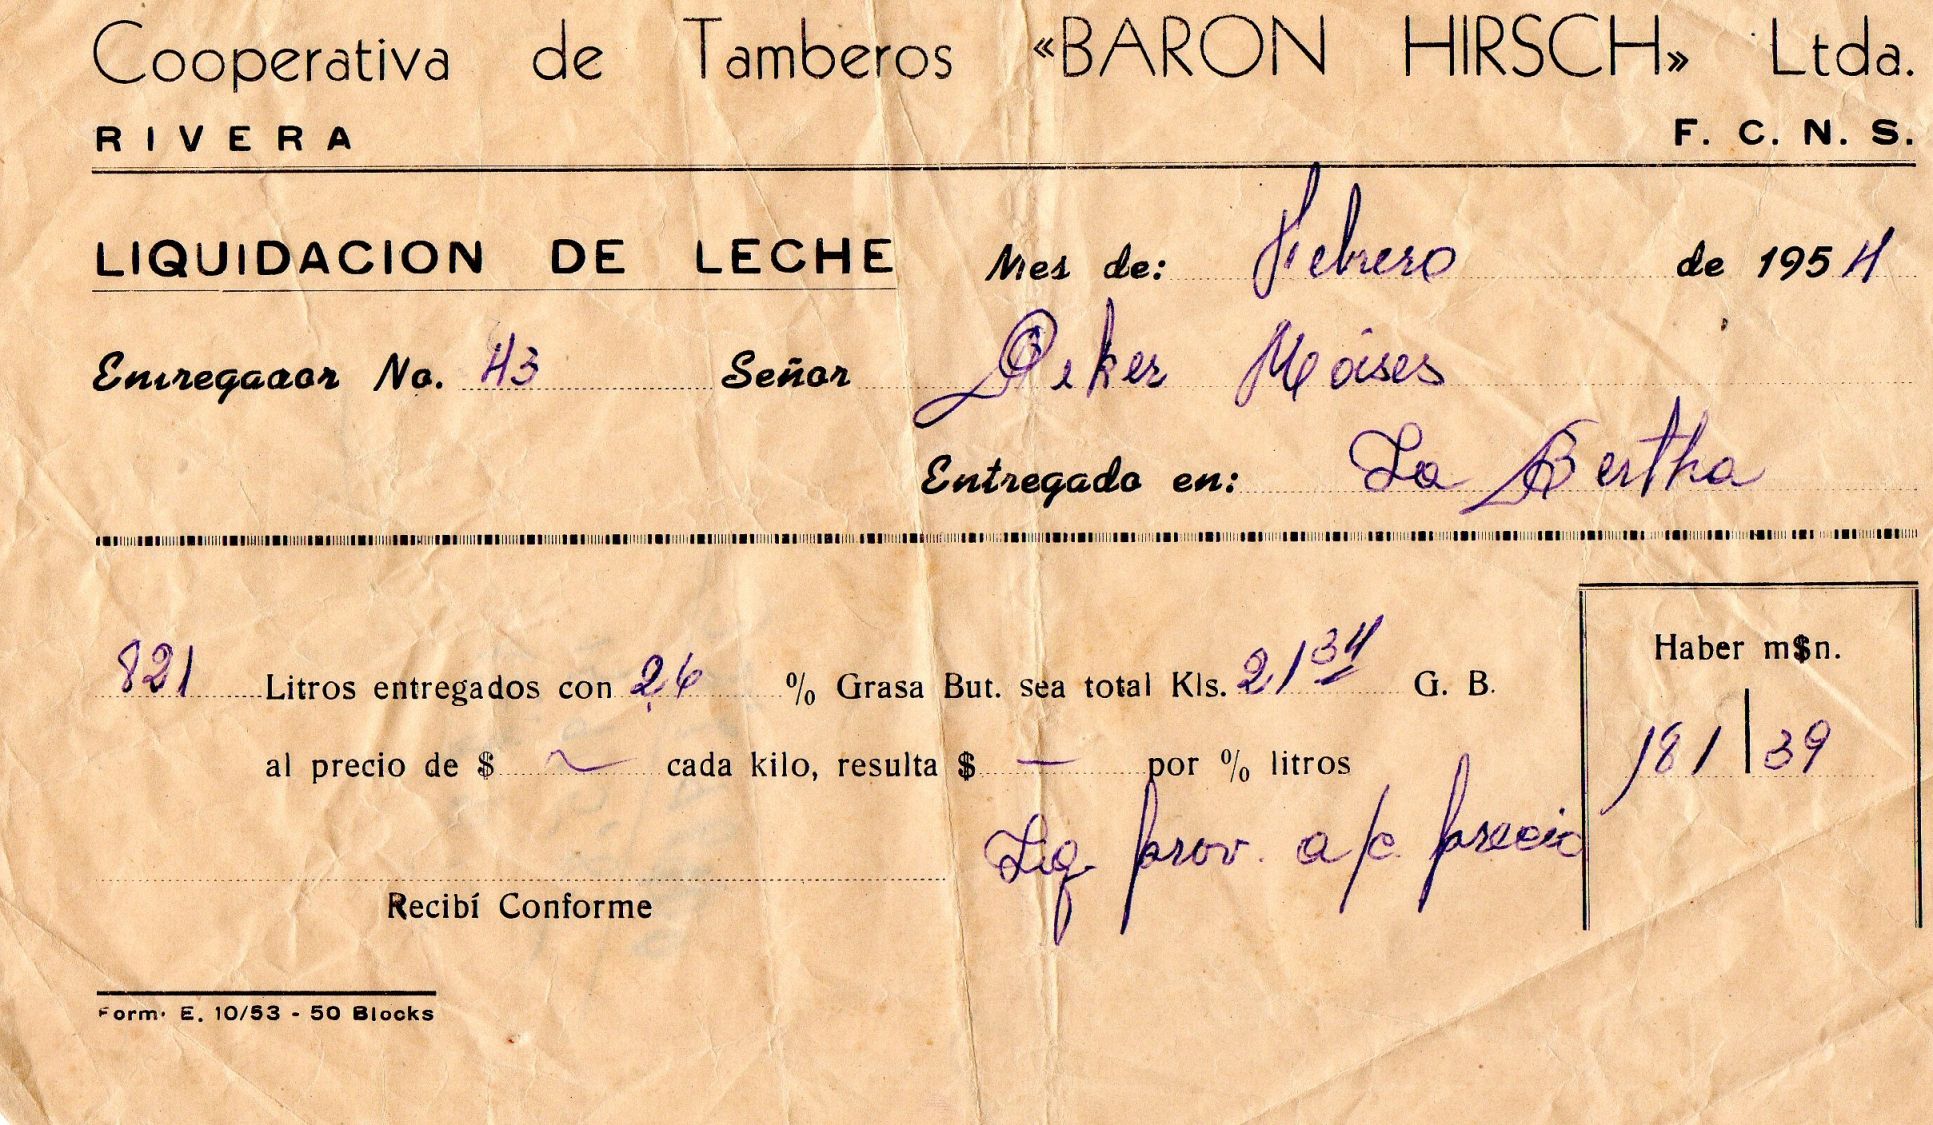 Cooperativa de Tamberos «BARON HIRSCH» Ltda.
RIVERA F. C. N. S.
LIQUIDACION DE LECHE Mes de: Febrero de 1954
Entregador No. 43 Señor Deker Moises
Entregado en: La Bertha
821 Litros entregados con 2,6 % Grasa But. sea total Kls. 21 34 G. B.
Haber m$n.
al precio de $ ~ cada kilo, resulta $ — por % litros
181 | 39
Liq. prov. a/c. precio
Recibí Conforme
Form. E. 10/53 - 50 Blocks